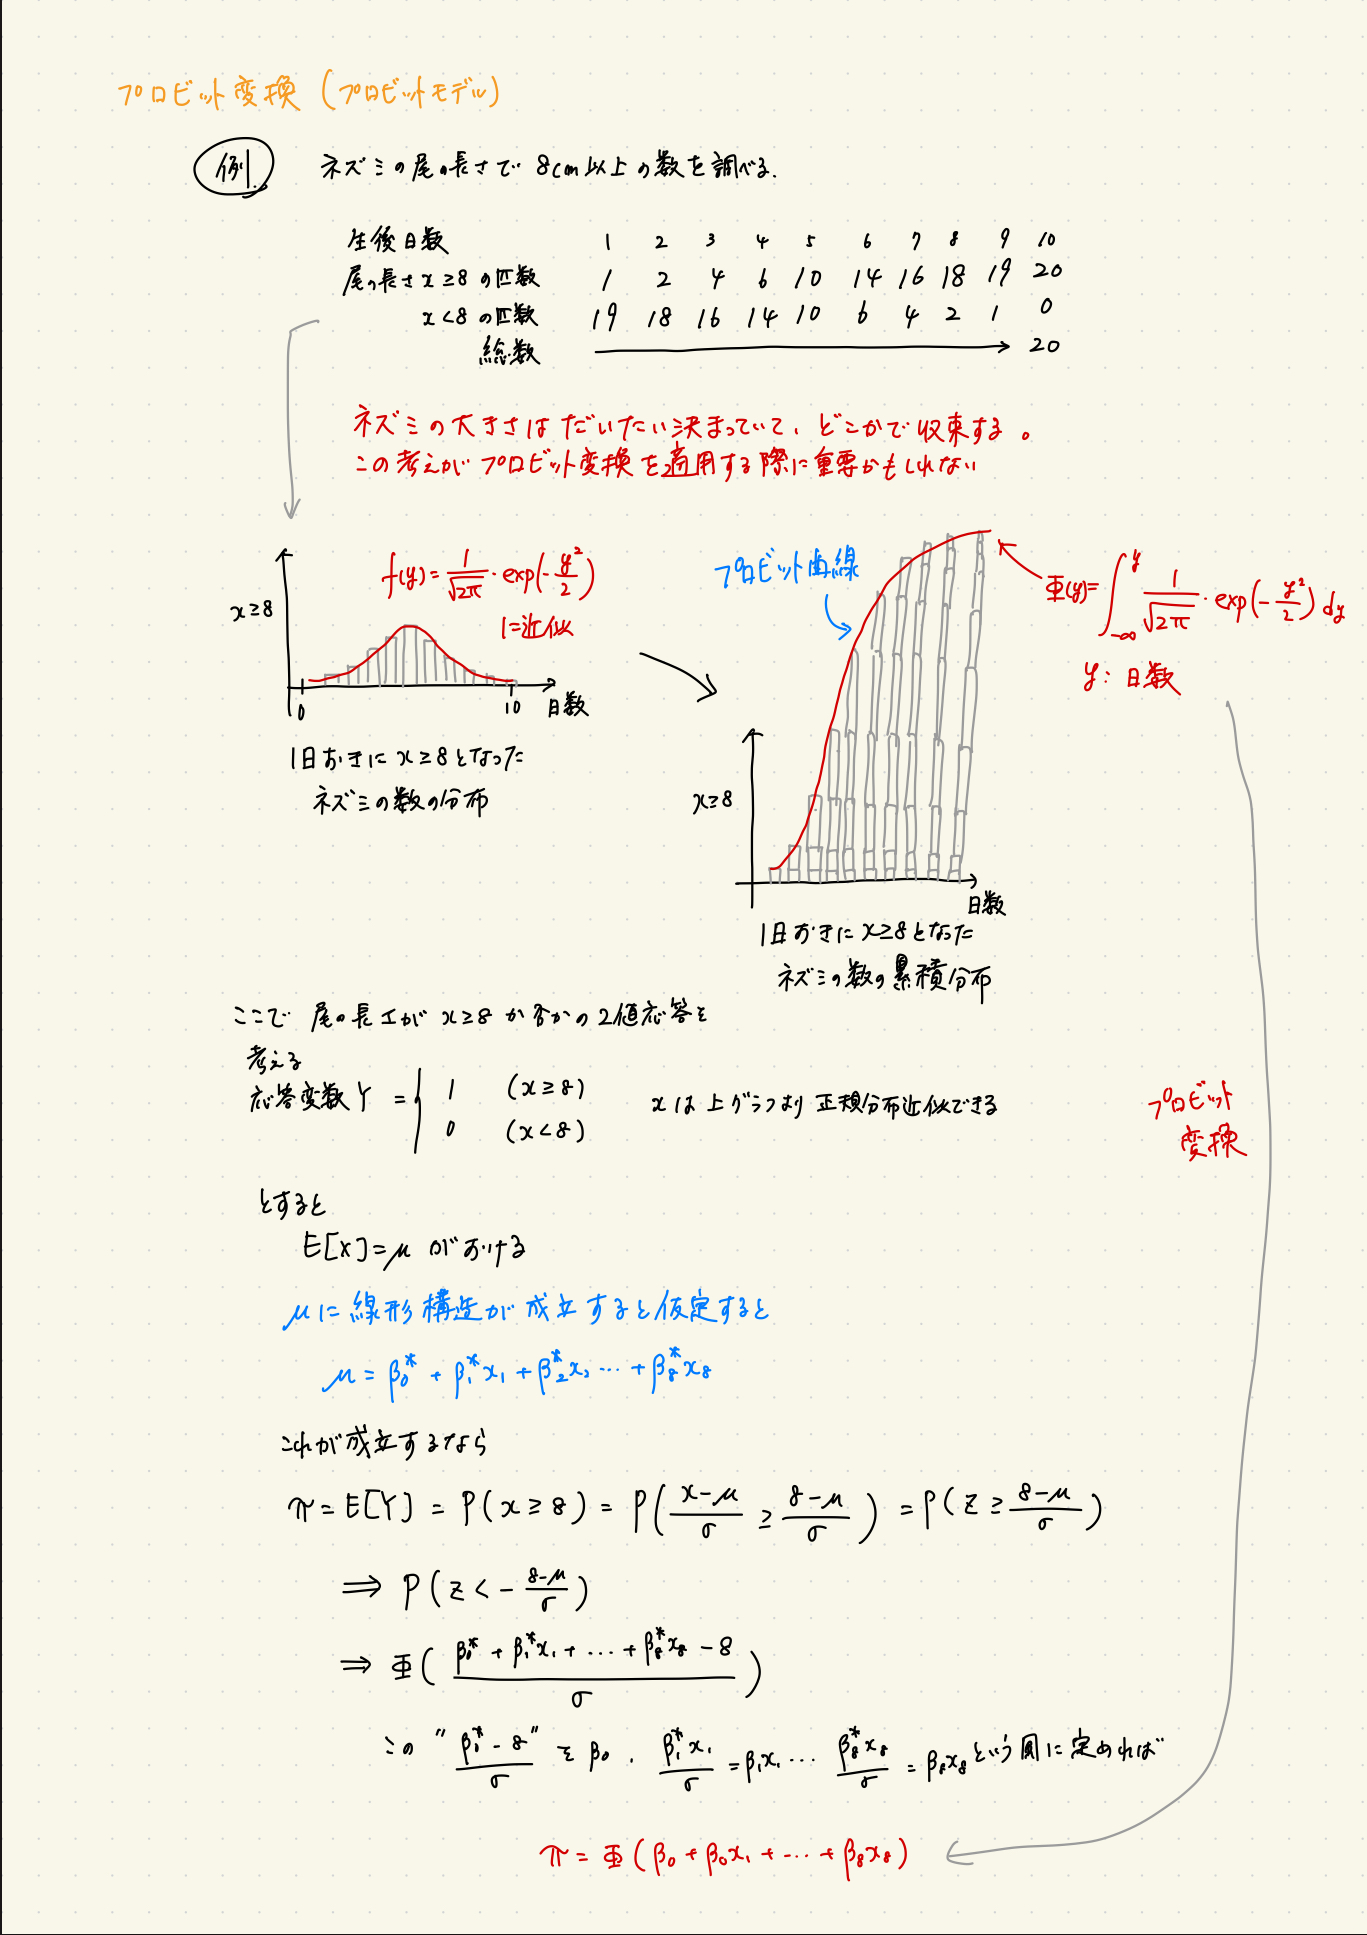 プロビット変換 (プロビットモデル)
例. ネズミの尾の長さで 8cm以上の数を調べる.
生後日数 1 2 3 4 5 6 7 8 9 10
尾の長さ x≥8 の匹数 1 2 4 6 10 14 16 18 19 20
x<8 の匹数 19 18 16 14 10 6 4 2 1 0
総数 → 20
ネズミの大きさはだいたい決まっていて、どこかで収束する。
この考えがプロビット変換を適用する際に重要かもしれない
x≥8
f(y) = 1/√2π · exp(-y²/2)
に近似
0 10 日数
1日おきに x≥8となった
ネズミの数の分布
プロビット曲線
Φ(y) = ∫_{-∞}^{y} 1/√2π · exp(-y²/2) dy
y: 日数
x≥8
日数
1日おきに x≥8となった
ネズミの数の累積分布
ここで 尾の長さが x≥8 か否かの2値応答を
考える
応答変数Y = { 1 (x≥8)
0 (x<8)
xは上グラフより正規分布近似できる
とすると
E[x]=μ がおける
μに線形構造が成立すると仮定すると
μ = β₀* + β₁*x₁ + β₂*x₂ … + β₈*x₈
これが成立するなら
π = E[Y] = P(x≥8) = P((x-μ)/σ ≥ (8-μ)/σ) = P(z ≥ (8-μ)/σ)
⇒ P(z < -(8-μ)/σ)
⇒ Φ((β₀* + β₁*x₁ + … + β₈*x₈ - 8)/σ)
この "(β₀* - 8)/σ" を β₀ . β₁*x₁/σ = β₁x₁ … β₈*x₈/σ = β₈x₈ という風に定めれば
π = Φ(β₀ + β₀x₁ + … + β₈x₈)
プロビット
変換